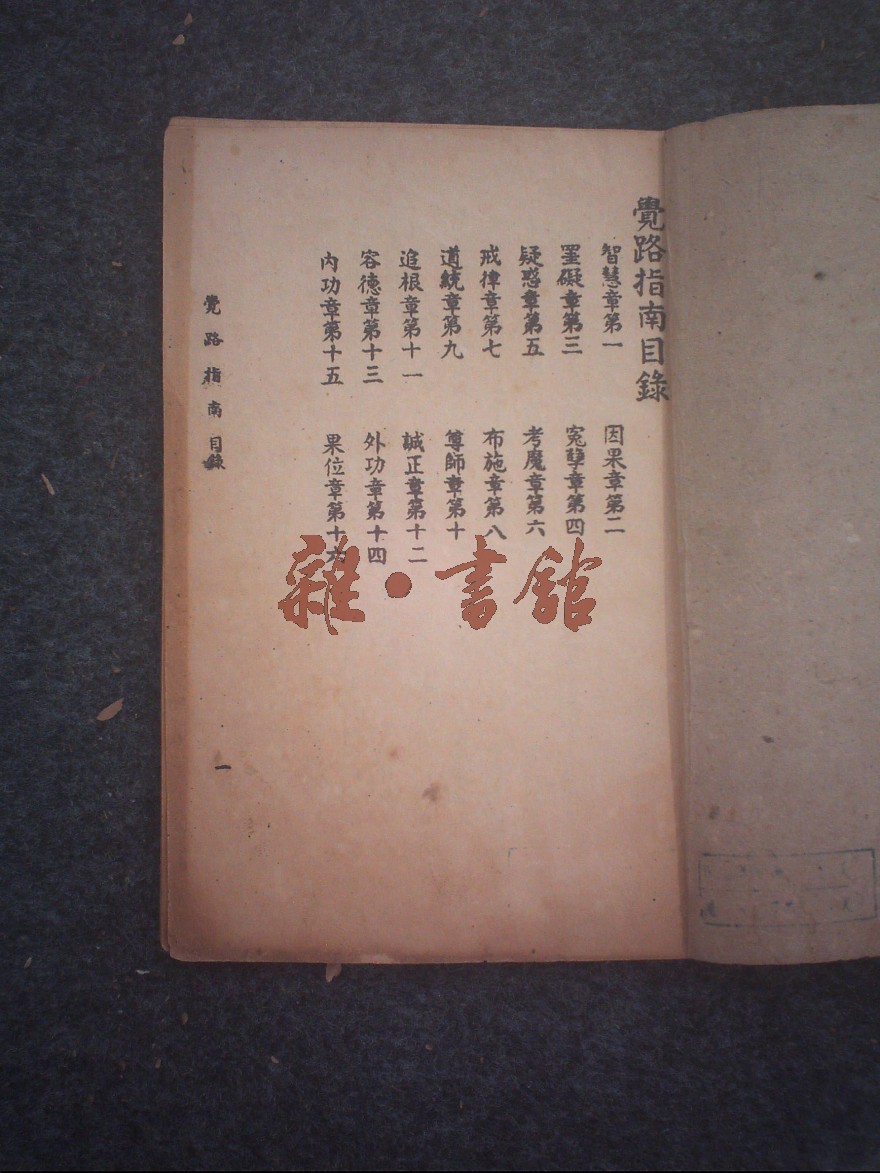 覺路指南目錄
智慧章第一
因果章第二
罣礙章第三
冤孽章第四
疑惑章第五
考魔章第六
戒律章第七
布施章第八
道統章第九
尊師章第十
追根章第十一
誠正章第十二
容德章第十三
外功章第十四
內功章第十五
果位章第十六
覺路指南目錄
一
雜·書館